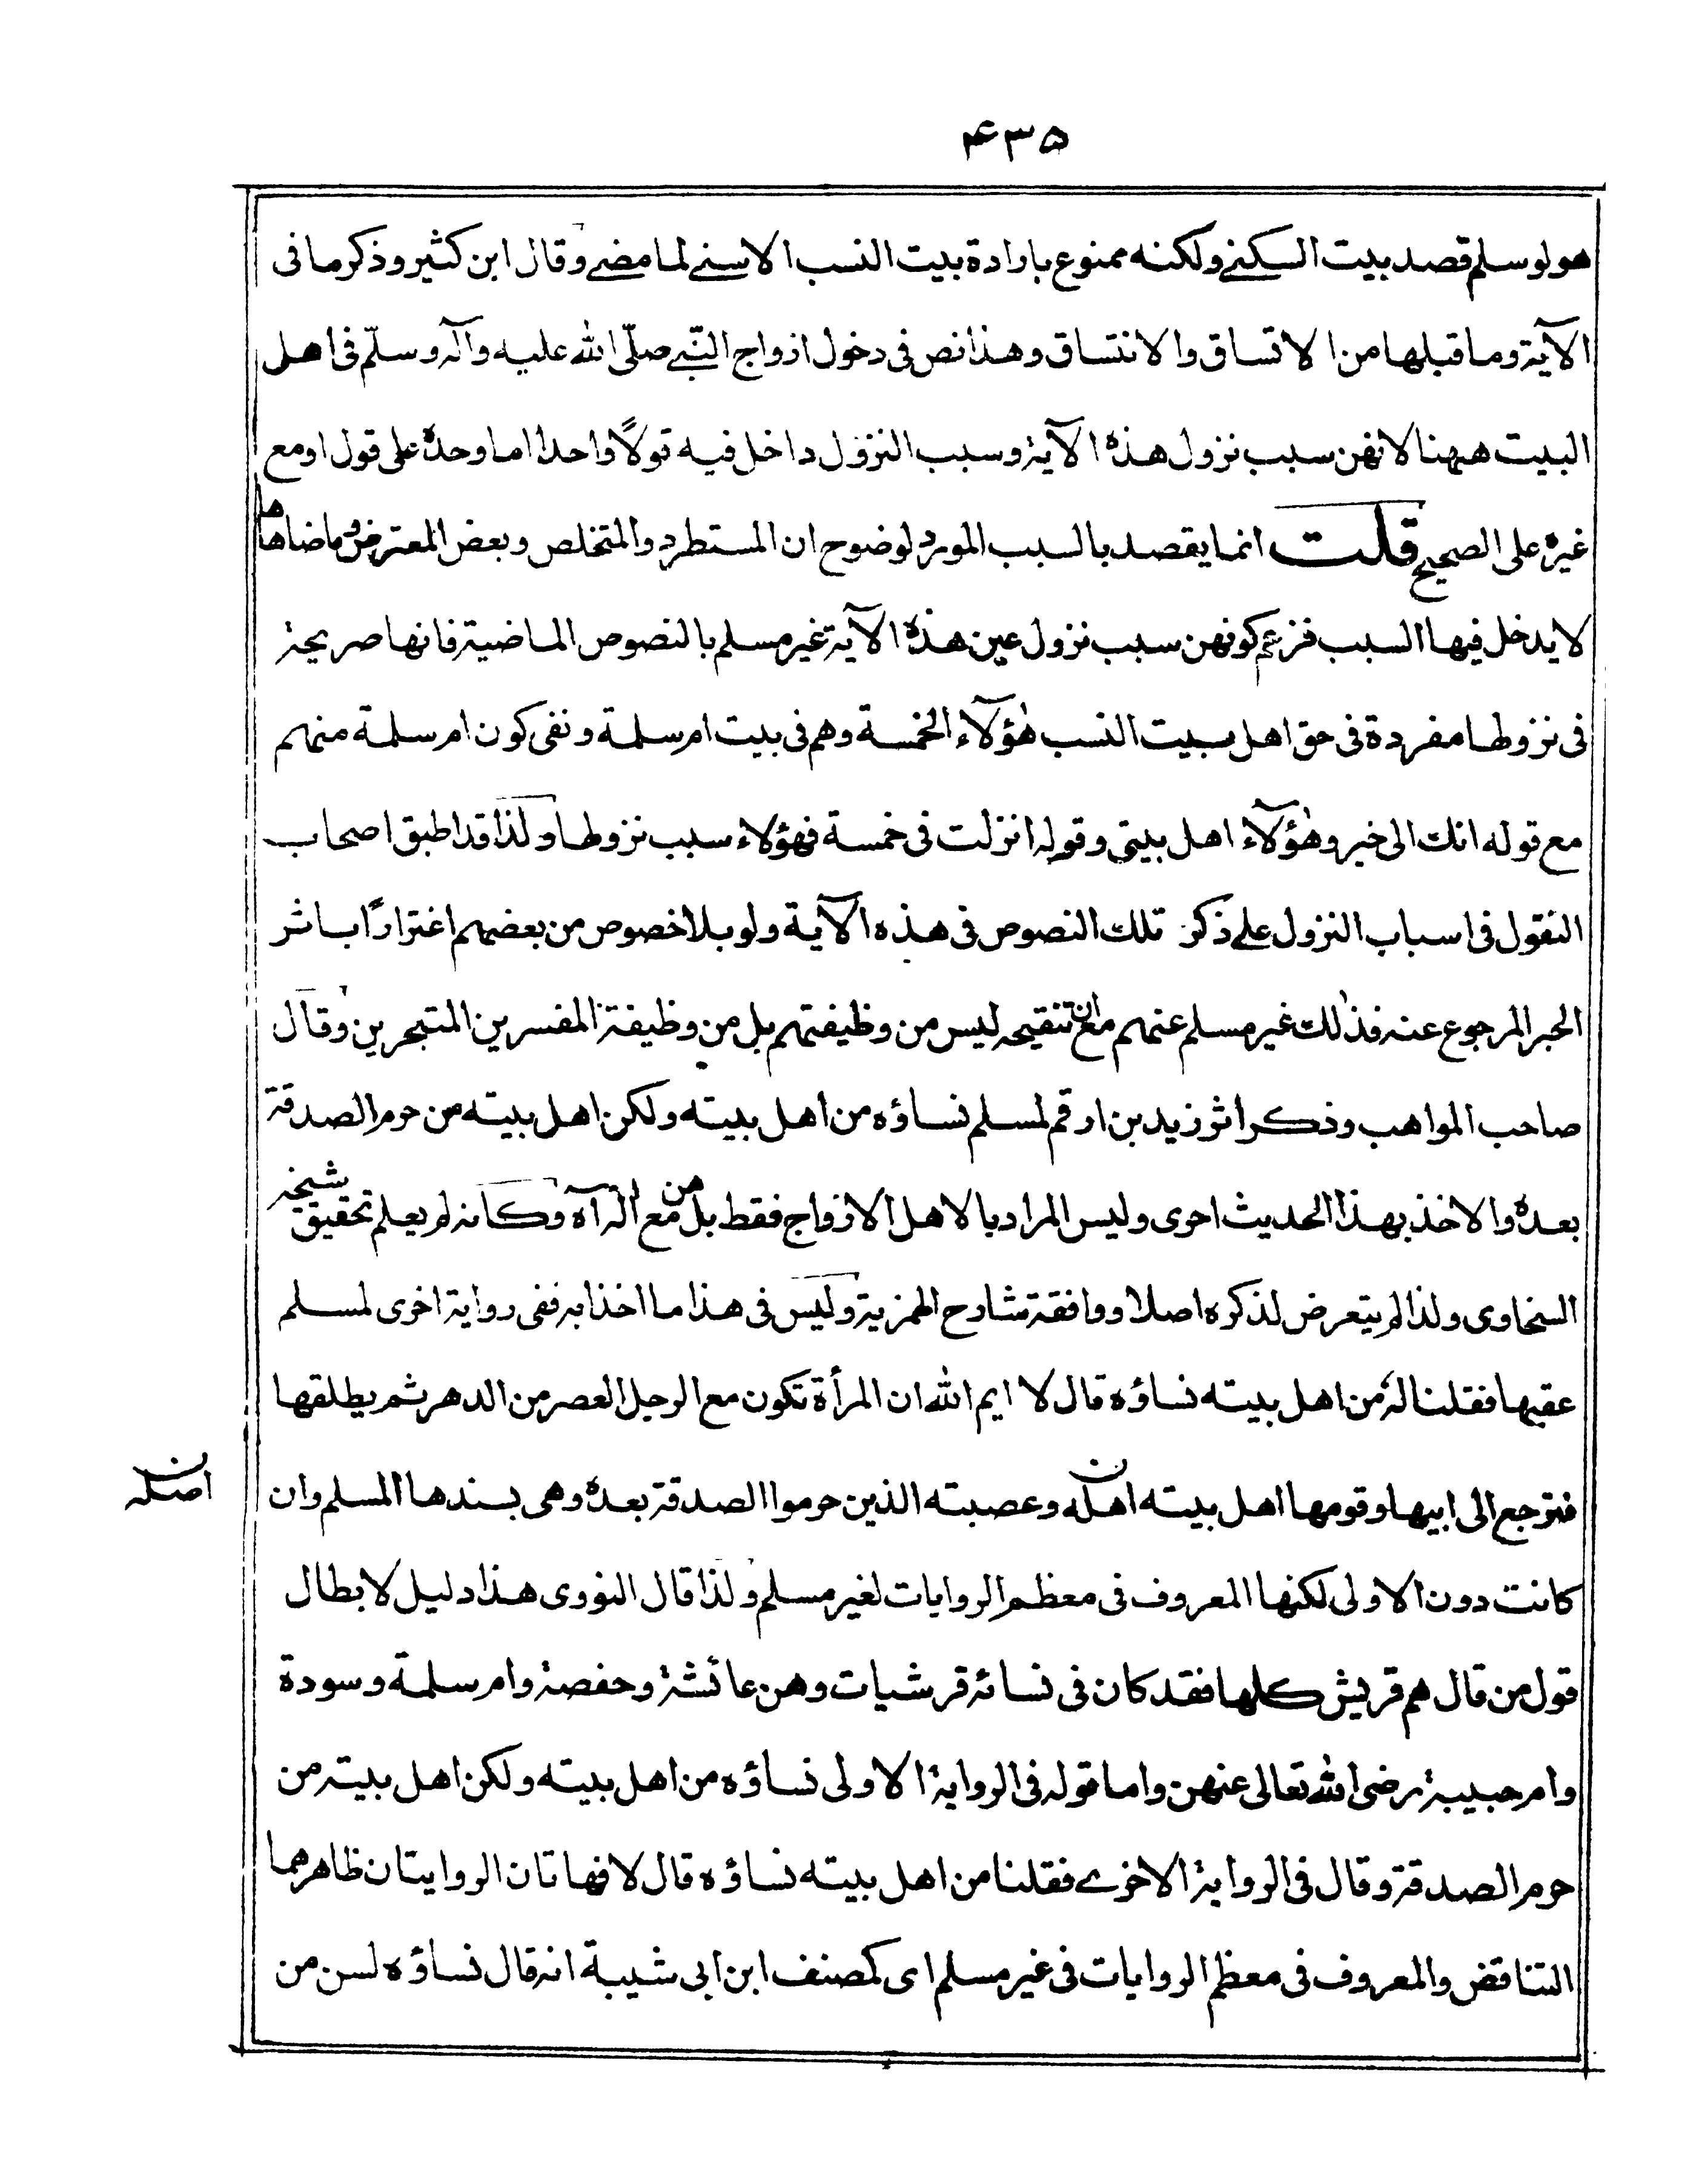 ۴۳۵
هو لو سلم قصد بيت السكنے ولكنه ممنوع بارادة بيت النسب الاسنے لما مضے وقال ابن كثير وذكر ما فى
الآية وما قبلها من الاتساق والانتساق وهذا نص فى دخول ازواج النّبے صلّى الله عليه وآله وسلّم فى اهل
البيت ههنا لانهن سبب نزول هذه الآية وسبب النزول داخل فيه قولًا واحدا اما وحدهٗ على قول او مع
غيره على الصحيح قلت انما يقصد بالسبب المورد لوضوح ان المستطرد والمتخلص وبعض المعترض وما ضاهاها
لا يدخل فيها السبب فزعم كونهن سبب نزول عين هذه الآية غير مسلم بالنصوص الماضية فانها صريحة
فى نزولها مفردة فى حق اهل بيت النسب هٰؤلآء الخمسة وهم فى بيت ام سلمة ونفى كون ام سلمة منهم
مع قوله انك الى خير وهٰؤلآء اهل بيتى وقوله انزلت فى خمسة فهؤلاء سبب نزولها ولذا قد اطبق اصحاب
النقول فى اسباب النزول علے ذكر تلك النصوص فى هذه الآية ولو بلا خصوص من بعضهم اغترارًا باثر
الحبر المرجوع عنه فذٰلك غير مسلم عنهم مع ان تنقيحه ليس من وظيفتهم بل من وظيفة المفسرين المتبحرين وقال
صاحب المواهب وذكر اثر زيد بن ارقم لمسلم نساؤه من اهل بيته ولكن اهل بيته من حرم الصدقة
بعدهٗ والاخذ بهذا الحديث احرى وليس المراد بالاهل الازواج فقط بل هن مع اٰله آه وكانه لم يعلم تحقيق شيخه
السخاوى ولذا لم يتعرض لذكره اصلا ووافقة شارح الهمزية وليس فى هذا ما اخذا به ففى رواية اخرى لمسلم
عقبها فقلنا لهٗ من اهل بيته نساؤه قال لا ايم الله ان المرأة تكون مع الرجل العصر من الدهر ثم يطلقها
فترجع الى ابيها وقومها اهل بيته اهله وعصبته الذين حرموا الصدقة بعدهٗ وهى بسندها المسلم وان
اصله ن
كانت دون الاولى لكنها المعروف فى معظم الروايات لغير مسلم ولذا قال النووى هذا دليل لابطال
قول من قال هم قريش كلها فقد كان فى نسائه قرشيات وهن عائشة وحفصة وام سلمة وسودة
وام حبيبة رضى الله تعالى عنهن واما قوله فى الرواية الاولى نساؤه من اهل بيته ولكن اهل بيته من
حرم الصدقة وقال فى الرواية الاخرے فقلنا من اهل بيته نساؤه قال لا فهاتان الروايتان ظاهرهما
التناقض والمعروف فى معظم الروايات فى غير مسلم اى كمصنف ابن ابى شيبة انه قال نساؤه لسن من